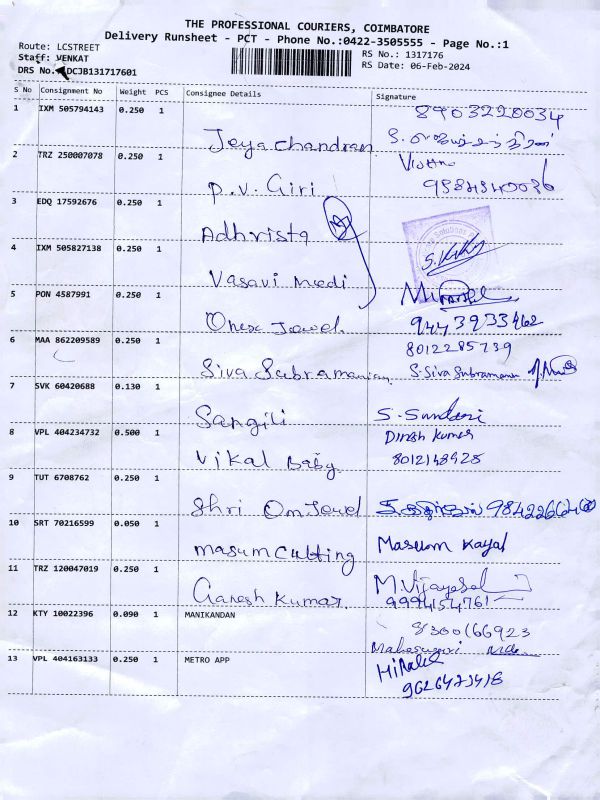 THE PROFESSIONAL COURIERS, COIMBATORE
Delivery Runsheet - PCT - Phone No.:0422-3505555 - Page No.:1
Route: LCSTREET
RS No.: 1317176
Staff: VENKAT
RS Date: 06-Feb-2024
DRS No. DCJB131717601
S No Consignment No Weight PCS Consignee Details Signature
1 IXM 505794143 0.250 1 8903220034
Jeya chandran
2 TRZ 250007078 0.250 1
P.V. Giri 9584340036
3 EDQ 17592676 0.250 1
Adhrista
4 IXM 505827138 0.250 1
Vasavi medi
5 PON 4587991 0.250 1
Onex Jewel 9443933462
6 MAA 862209589 0.250 1 8012285739
Siva Subramanian S.Siva Subramani
7 SVK 60420688 0.130 1
Sangili S. Sundari
8 VPL 404234732 0.500 1 Dinesh Kumar
Vikal Baby 8012148925
9 TUT 6708762 0.250 1
Shri Om Jewel
10 SRT 70216599 0.050 1
masum cutting Masum Kayal
11 TRZ 120047019 0.250 1
Ganesh Kumar 9994154761
12 KTY 10022396 0.090 1 MANIKANDAN
8300166923
13 VPL 404163133 0.250 1 METRO APP
9626473418